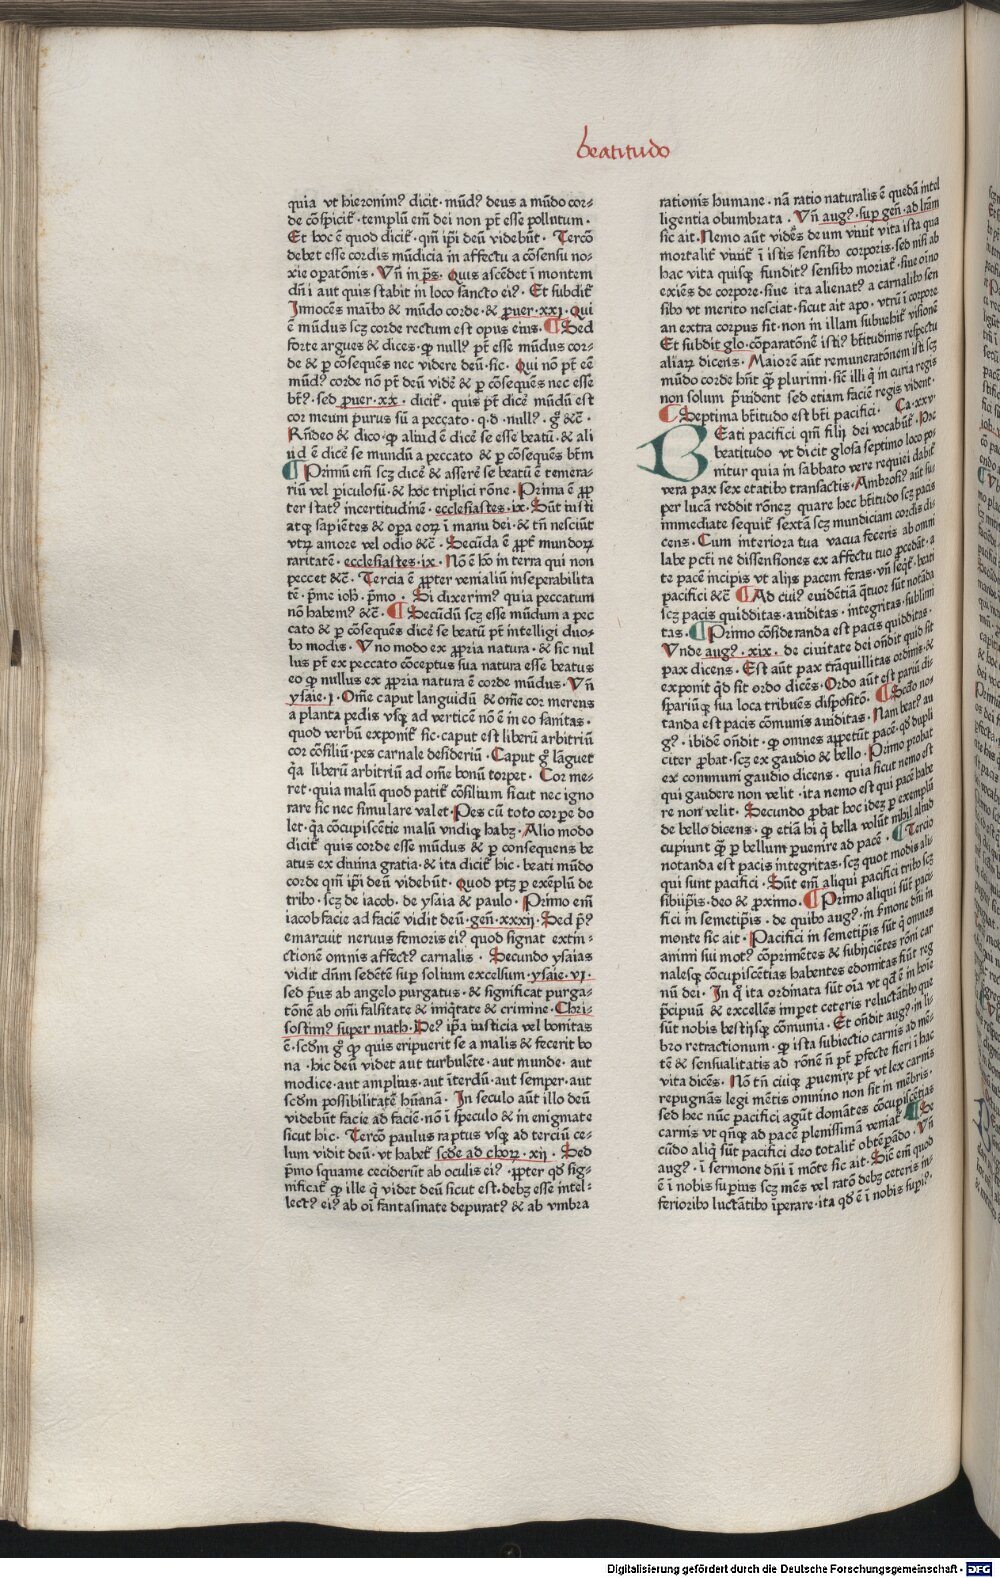 beatitudo
quia vt hieronimꝰ dicit · mūdꝰ deus a mūdo cor⸗
de cōspicit᷑ · templū em̄ dei non pt̄ esse pollutum ·
Et hoc ē quod dicit᷑ · qm̄ ip̄i deū videbūt · Tercō
debet esse cordis mūdicia in affectu a cōsensu no⸗
xie oꝑatōnis · Vn̄ in p̄s · Quis ascēdet ī montem
dn̄i aut quis stabit in loco sancto eiꝰ · Et subdit᷑
Innocēs maibꝰ & mūdo corde · & ꝓuer · xxj · Qui
ē mūdus scꝫ corde rectum est opus eius · Sed
forte argues & dices · ꝙ nullꝰ pt̄ esse mūdus cor⸗
de & ꝑ cōsequēs nec videre deū · sic · Qui nō pt̄ eē
mūdꝰ corde nō pt̄ deū vidē & ꝑ cōsequēs nec esse
bt̄ꝰ · sed ꝓuer · xx · dicit᷑ · quis pt̄ dicē mūdū est
cor meum purus sū a peccato · q · d · nullꝰ · g̊ &c̄ ·
Rn̄deo & dico · ꝙ aliud ē dicē se esse beatū · & ali
ud ē dicē se mundū a peccato & ꝑ cōsequēs bt̄m
Primū em̄ scꝫ dicē & asserē se beatū ē temera⸗
riū vel ꝑiculosū · & hoc triplici rōne · Prima ē ꝓp
ter statꝰ incertitudinē · ecclesiastes · ix · Sūt iusti
atqꝫ sapiētes & oꝑa eoꝝ ī manu dei · & tn̄ nesciūt
vtꝝ amore vel odio &c̄ · Secūda ē ꝓpt̄ mundoꝝ
raritatē · ecclesiastes · ix · Nō ē hō in terra qui non
peccet &c̄ · Tercia ē ꝓpter venialiū inseperabilita
tē · p̄me ioh̄ · p̄mo · Si dixerimꝰ quia peccatum
nō habemꝰ &c̄ · Secūdū scꝫ esse mūdum a pec
cato & ꝑ cōsequēs dicē se beatū pt̄ intelligi duo⸗
bꝰ modis · Vno modo ex ꝓpria natura · & sic nul
lus pt̄ ex peccato cōceptus sua natura esse beatus
eo ꝙ nullus ex ꝓpria natura ē corde mūdus · Vn̄
ysaie · j · Om̄e caput languidū & om̄e cor merens
a planta pedis vsqꝫ ad verticē nō ē in eo sanitas ·
quod verbū exponit᷑ sic · caput est liberū arbitriū
cor cōsiliū · pes carnale desideriū · Caput g̊ lāguet
qͣa liberū arbitriū ad om̄e bonū torpet · Cor me⸗
ret · quia malū quod patit᷑ cōsilium sicut nec igno
rare sic nec simulare valet · Pes cū toto corꝑe do
let · qͣa cōcupiscētie malū vndiqꝫ habꝫ · Alio modo
dicit᷑ quis corde esse mūdus & ꝑ consequens be
atus ex diuina gratia · & ita dicit᷑ hic · beati mūdo
corde qm̄ ip̄i deū videbūt · Quod ptꝫ ꝑ exēplū de
tribꝰ · scꝫ de iacob · de ysaia & paulo · Primo em̄
iacob facie ad faciē vidit deū · gen̄ · xxxij · Sed p̄ꝰ
emarcuit neruus femoris eiꝰ quod signat extin⸗
ctionē omnis affectꝰ carnalis · Secundo ysaias
vidit dn̄m sedētē suꝑ solium excelsum · ysaie · vj ·
sed p̄us ab angelo purgatus · & significat purga⸗
tōnē ab om̄i falsitate & iniq̄tate & crimine · Chri⸗
sostimꝰ super math · Deꝰ ip̄a iusticia vel bonitas
ē · scdm g̊ ꝙ quis eripuerit se a malis & fecerit bo
na · hic deū videt aut turbulēte · aut munde · aut
modice · aut amplius · aut īterdū · aut semper · aut
scdm possibilitatē hūanā · In seculo aūt illo deū
videbūt facie ad faciē · nō ī speculo & in enigmate
sicut hic · Tercō paulus raptus vsqꝫ ad terciū ce⸗
lum vidit deū · vt habet᷑ scd̄e ad choꝝ · xij · Sed
p̄mo squame ceciderūt ab oculis eiꝰ · ꝓpter qd̄ sig⸗
nificat᷑ ꝙ ille q̇ videt deū sicut est · debꝫ esse intel⸗
lectꝰ eiꝰ ab oī fantasmate depuratꝰ & ab vmbra
rationis humane · nā ratio naturalis ē quedā intel
ligentia obumbrata · Vn̄ augꝰ · suꝑ gen̄ · ad lr̄am
sic ait · Nemo aūt vidēs deum viuit vita ista qua
mortalit᷑ viuit᷑ ī istis sensibꝰ corporis · sed nisi ab
hac vita quisqꝫ funditꝰ sensibꝰ moriat᷑ · siue oīno
exiēs de corpore · siue ita alienatꝰ a carnalibꝰ sen
sibꝰ vt merito nesciat · sicut ait apo · vtrū ī corpore
an extra corpus sit · non in illam subuehit᷑ visionē
Et subdit glo · cōparatōnē istiꝰ bt̄itudinis respectu
aliaꝝ dicens · Maiorē aūt remuneratōnem isti scꝫ
mūdo corde hn̄t qͣꝫ plurimi · sic illi q̇ in curia regis
non solum p̄uident sed etiam faciē regis vident ·
Septima bt̄itudo est bt̄i pacifici · Ca · xxv ·
BEati pacifici qm̄ filij dei vocabūt᷑ · Hec
beatitudo vt dicit glosa septimo loco po⸗
nitur quia in sabbato vere requiei dabit᷑
vera pax sex etatibꝰ transactis · Ambrosiꝰ aūt suꝑ
per lucā reddit rōneꝫ quare hec bt̄itudo scꝫ pacis
immediate sequit᷑ sextā scꝫ mundiciam cordis di⸗
cens · Cum interiora tua vacua feceris ab omni
labe pctī ne dissensiones ex affectu tuo ꝓcedāt · a
te pacē incipis vt alijs pacem feras · vn̄ seqt᷑ · beati
pacifici &c̄ Ad cuiꝰ euidētiā q̄tuor sūt notāda
scꝫ pacis quidditas · auiditas · integritas · sublimi
tas · Primo cōsideranda est pacis quidditas ·
Vnde augꝰ · xix · de ciuitate dei on̄dit quid sit
pax dicens · Est aūt pax trāquillitas ordinis · &
exponit qd̄ sit ordo dicēs · Ordo aūt est pariū di⸗
spariūqꝫ sua loca tribuēs dispositō · Scd̄o no⸗
tanda est pacis cōmunis auiditas · Nam beatꝰ au
gꝰ · ibidē on̄dit · ꝙ omnes appetūt pacē · qd̄ dupli
citer ꝓbat · scꝫ ex gaudio & bello · Primo probat
ex communi gaudio dicens · quia sicut nemo est
qui gaudere non velit · ita nemo est qui pacē habe
re non velit · Secundo ꝓbat hoc ideꝫ ꝑ exemplū
de bello dicens · ꝙ etiā hi q̇ bella volūt nihil aliud
cupiunt qͣꝫ ꝑ bellum ꝑuenire ad pacē · Tercio
notanda est pacis integritas · scꝫ quot modis ali
qui sunt pacifici · Sūt em̄ aliqui pacifici tribꝰ scꝫ
sibiip̄is · deo & ꝓximo · Primo aliqui sūt paci⸗
fici in semetip̄is · de quibꝰ augꝰ · in ẜmone dn̄i in
monte sic ait · Pacifici in semetip̄is sūt q̇ omnes
animi sui motꝰ cōprimētes & subijciētes rōni car
nalesqꝫ cōcupiscētias habentes edomitas fiūt reg
nū dei · In q̊ ita ordinata sūt oīa vt qd̄ ē in hoīe
p̄cipuū & excellēs imꝑet ceteris reluctātibꝰ que
sūt nobis bestijsqꝫ cōmunia · Et on̄dit augꝰ · in li⸗
bro retractionum · ꝙ ista subiectio carnis ad mē⸗
tē & sensualitatis ad rōnē n̄ pt̄ ꝑfecte fieri ī hac
vita dicēs · Nō tn̄ cuiqꝫ ꝓuenire pt̄ vt lex carnis
repugnās legi mētis omnino non sit in mēbris ·
sed hec nūc pacifici agūt domātes cōcupiscētias
carnis vt qn̄qꝫ ad pacē plenissimā veniat᷑ Se
cūdo aliq̇ sūt pacifici deo totalit᷑ obtēꝑādo · Vn̄
augꝰ · ī sermone dn̄i ī mōte sic ait · Sic em̄ quod
ē ī nobis suꝑius scꝫ mēs vel ratō debꝫ ceteris in⸗
ferioribꝰ luctātibꝰ īperare · ita qd̄ ē ī nobis suꝑiꝰ ·
Digitalisierung gefördert durch die Deutsche Forschungsgemeinschaft · DFG